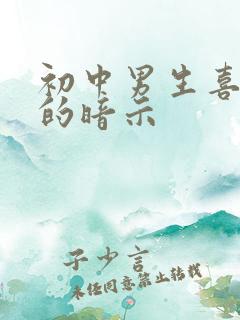 初中男生喜
的暗示
子少言
未经同意禁止转载